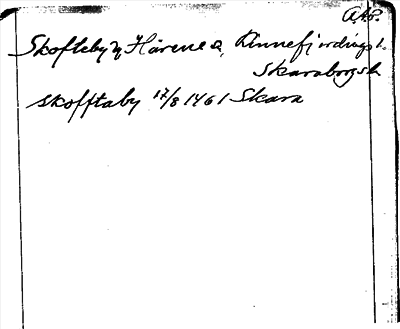 A.Ä.P.
Skofteby, Härene s, Kinnefjerdings h.
Skaraborgs l.
skofftaby 17/8 1461 Skara